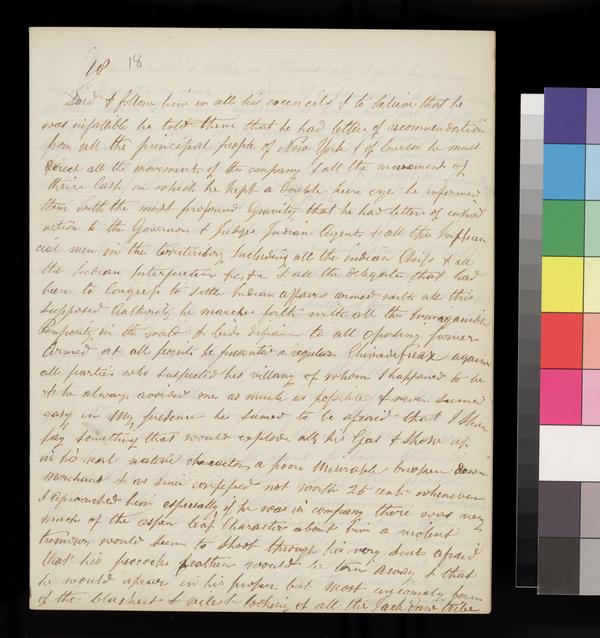 18 18
Said & follow him in all his councils & to believe that he
was infallible he told them that he had letters of recommendation
from all the principal people of New York & of Course he must
direct all the movements of the company & all the movements of
their Cash on which he kept a double keen eye he informed
them with the most profound Gravity that he had letters of introd
uction to the Governors & Judges Indian Agents & all the Influen
cial men in the territories Including all the indian Chiefs & all
the Indian Interpreters &c &c & all the delegates that had
been to Congress to settle Indian affairs armed with all this
supposed Authority he marches forth with all the
Pomposity in the world & bids defiance to all oposing powers
Armed at all points he presented a regular against
all parties who suspected his villany of whom I happened to be
& he always avoided me as much as possible & never seemed
easy in my presence he semed to be afraid that I
say something that would explode all his Gas & show up
in his real native character a poor Miserable broken down
Merchant & as since confessed not worth 25 cents whenever
I aproached him especially if he was in company there was very
much of the aspen leaf Character about him a violent
tremour would seem to shoot through his very soul afraid
that his peacocks feathers would be torn away & that
he would apear in his proper but most form
of the blackest & vilest looking of all the Jack Daw tribe